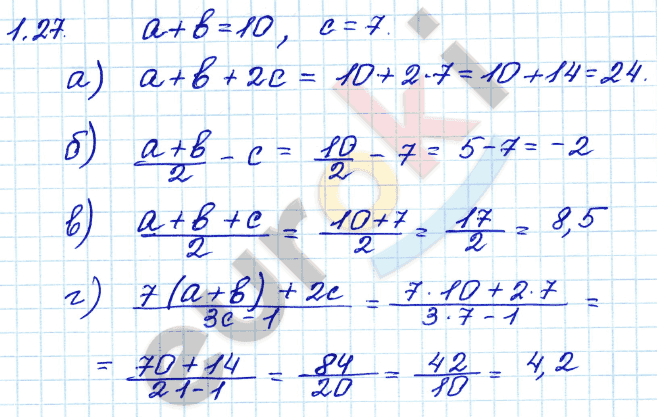 1.27. a+b=10, c=7.
а) a+b+2c = 10+2·7=10+14=24.
б) (a+b)/2 - c = 10/2 - 7 = 5-7= -2
в) (a+b+c)/2 = (10+7)/2 = 17/2 = 8,5
г) (7(a+b)+2c)/(3c-1) = (7·10+2·7)/(3·7-1) =
= (70+14)/(21-1) = 84/20 = 42/10 = 4,2
euroki